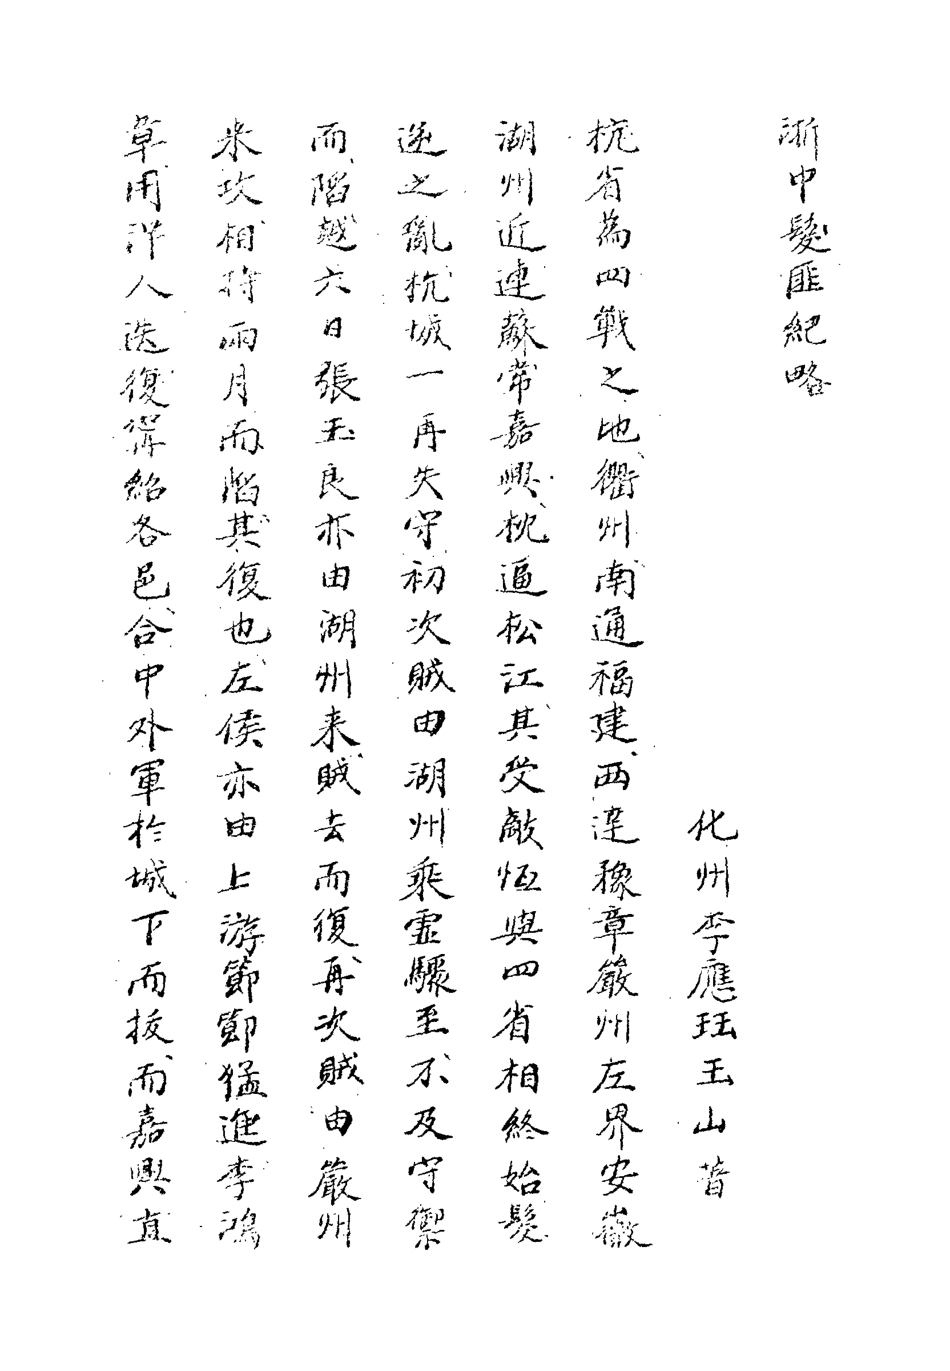 浙中髮匪紀略
化州李應珏玉山著
杭省為四戰之地衢州南通福建西達豫章嚴州左界安徽
湖州近連蘇常嘉興枕逼松江其受敵恆與四省相終始髮
逆之亂杭城一再失守初次賊由湖州乘虛驟至不及守禦
而陷越六日張玉良亦由湖州来賊去而復再次賊由嚴州
来攻相持兩月而陷其復也左侯亦由上游節節猛進李鴻
章用洋人迭復甯紹各邑合中外軍於城下而拔而嘉興直